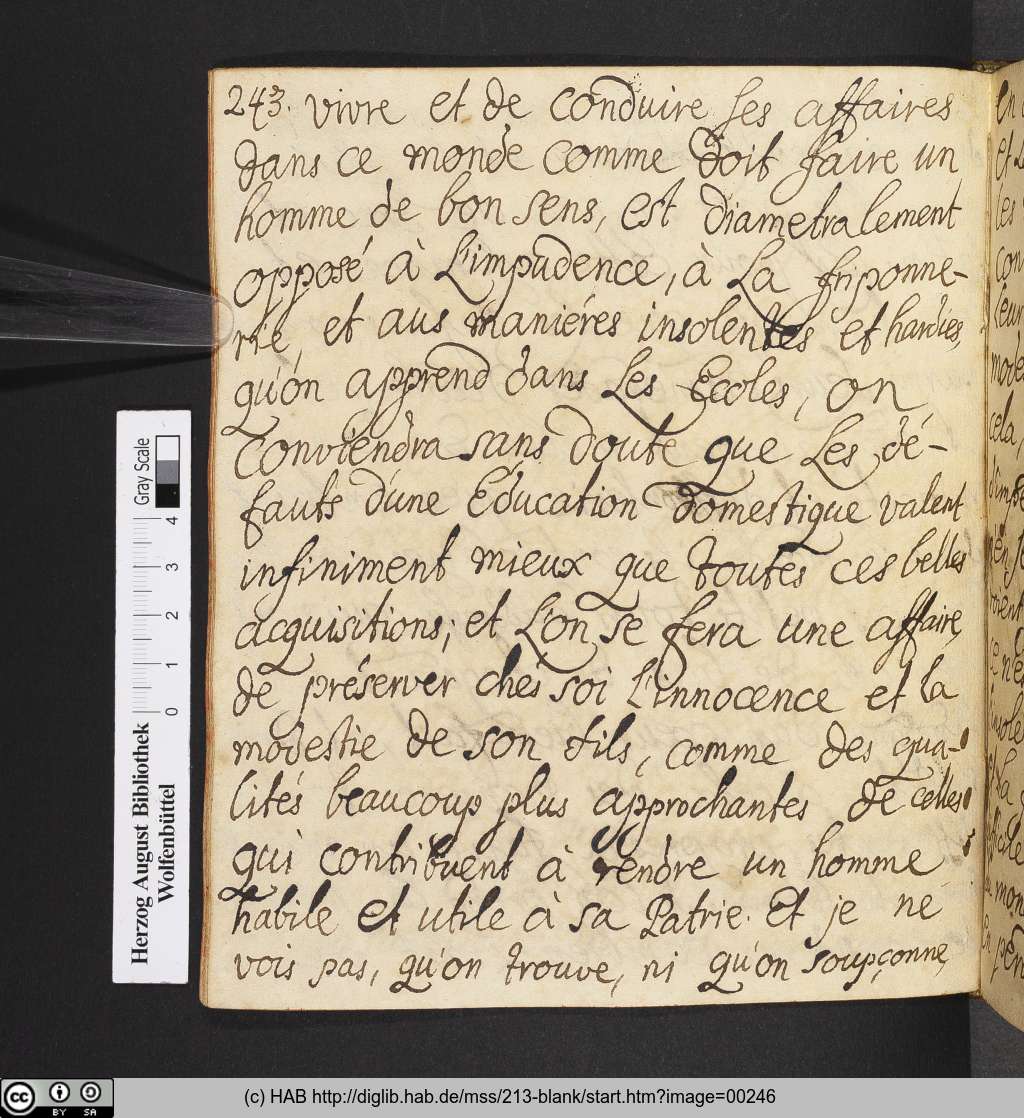 243. vivre et de conduire ses affaires
dans ce monde comme doit faire un
homme de bon sens, est diametralement
opposé à L'impudence, à La friponne-
rie, et aus maniéres insolentes et hardies,
qu'on apprend dans Les Ecoles, on
conviendra sans doute que Les dé-
fauts d'une Education domestique valent
infiniment mieux que toutes ces belles
acquisitions; et L'on se fera une affaire,
de préserver chés soi L'innocence et la
modestie de son fils, comme des qua-
lités beaucoup plus approchantes de celles
qui contribuent à rendre un homme
habile et utile à sa Patrie. Et je ne
vois pas, qu'on trouve, ni qu'on soupçonne,
Herzog August Bibliothek
Wolfenbüttel
0 1 2 3 4
Gray Scale
cc BY SA
(c) HAB http://diglib.hab.de/mss/213-blank/start.htm?image=00246